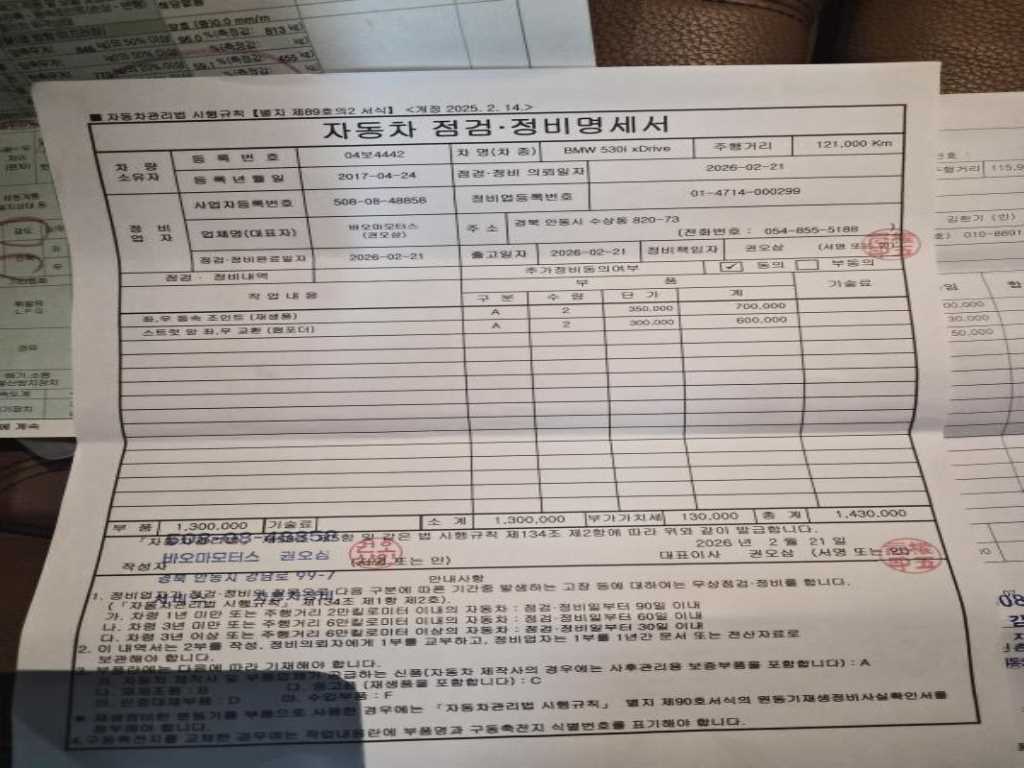 ■ 자동차관리법 시행규칙【별지 제89호의2 서식】 <개정 2025. 2. 14.>
자동차 점검·정비명세서
차 량 소유자
등 록 번 호 04보4442 차 명(차 종) BMW 530i xDrive 주행거리 121,000 Km
등 록 년 월 일 2017-04-24 점검·정비 의뢰일자 2026-02-21
정 비 업 자
사업자등록번호 508-08-48858 정비업등록번호 01-4714-000299
업체명(대표자) 바오마모터스 (권오삼) 주 소 경북 안동시 수상동 820-73
(전화번호 : 054-855-5188 )
점검·정비완료일자 2026-02-21 출고일자 2026-02-21 정비책임자 권오삼 (서명 또는 인)
점검 · 정비내역 추가정비동의여부 ✓ 동의 부동의
작 업 내 용 부 품 기술료
구 분 수 량 단 가 계
좌,우 등속 조인트 (재생품) A 2 350,000 700,000
스트럿 암 좌,우 교환 (렘포더) A 2 300,000 600,000
부 품 1,300,000 기술료 소 계 1,300,000 부가가치세 130,000 총 계 1,430,000
및 같은 법 시행규칙 제134조 제2항에 따라 위와 같이 발급합니다.
2026 년 2 월 21 일
바오마모터스 권오삼
작성자 (서명 또는 인) 대표이사 권오삼 (서명 또는 인)
경북 안동시 강남로 99-7
안내사항
1. 정비업자가 점검·정비 다음 구분에 따른 기간중 발생하는 고장 등에 대하여는 무상점검·정비를 합니다.
(「자동차관리법 시행규칙」 제134조 제1항 제2호).
가. 차령 1년 미만 또는 주행거리 2만킬로미터 이내의 자동차 : 점검·정비일부터 90일 이내
나. 차령 3년 미만 또는 주행거리 6만킬로미터 이내의 자동차 : 점검·정비일부터 60일 이내
다. 차령 3년 이상 또는 주행거리 6만킬로미터 이상의 자동차 : 점검·정비일부터 30일 이내
2. 이 내역서는 2부를 작성, 정비의뢰자에게 1부를 교부하고, 정비업자는 1부를 1년간 문서 또는 전산자료로
보관해야 합니다.
3. 부품란에는 다음에 따라 기재해야 합니다.
가. 자동차 제작사 및 부품업체가 공급하는 신품(자동차 제작사의 경우에는 사후관리용 보증부품을 포함합니다) : A
다. 중고품 (재생품을 포함합니다) : C
라. 인증대체부품 : D 마. 수입부품 : F
※ 재생정비한 원동기를 부품으로 사용한 경우에는 「자동차관리법 시행규칙」 별지 제90호서식의 원동기재생정비사실확인서를
첨부해야 합니다.
4. 구동축전지를 교환한 경우에는 작업내용란에 부품명과 구동축전지 식별번호를 표기해야 합니다.